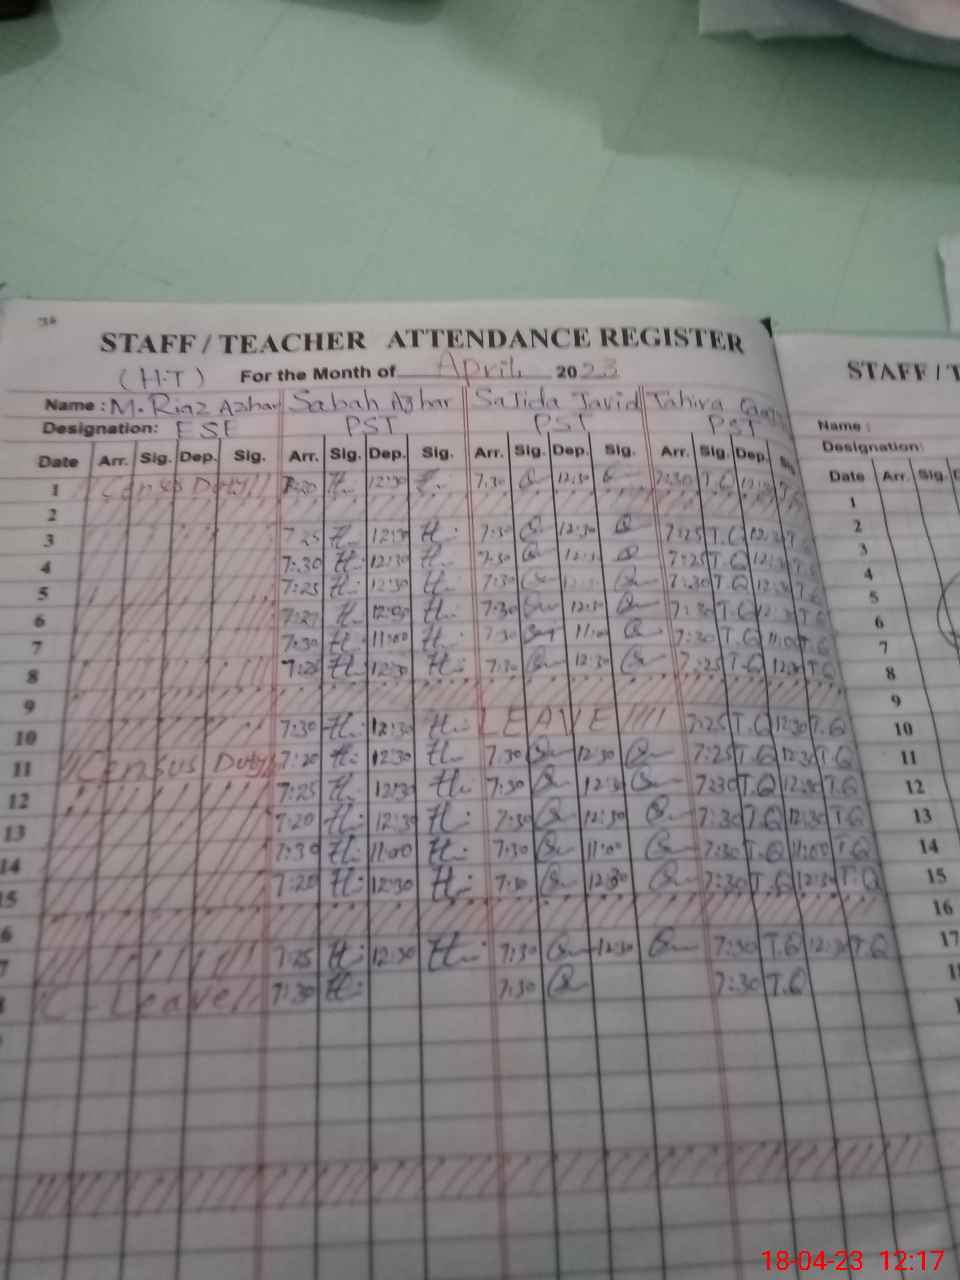 STAFF / TEACHER ATTENDANCE REGISTER
(H.T) For the Month of April 2023
Name : M. Riaz Azhar Sabah Azhar Sajida Javid Tahira
Designation: ESE PST PST PST
Date Arr. Sig. Dep. Sig. Arr. Sig. Dep. Sig. Arr. Sig. Dep. Sig. Arr. Sig. Dep.
1 Census Duty 7:20 12:30 7:30 12:30 7:30 T.Q
2
3 7:25 12:30 7:30 12:30 7:25 T.Q 12:30
4 7:30 12:30 7:30 7:25 T.Q 12:30
5 7:25 12:30 7:30 7:30 T.Q 12:30 T.Q
6 12:30 7:30 12:30 7:30 T.Q 12:30 T.Q
7 7:30 11:00 7:30 11:00 7:30 T.Q 11:00 T.Q
8 7:25 12:30 7:30 12:30 7:25 T.Q 12:30 T.Q
9
10 7:30 12:30 LEAVE 7:25 T.Q 12:30 T.Q
11 Census Duty 7:20 12:30 7:30 12:30 7:25 T.Q 12:30 T.Q
12 7:25 12:30 7:30 12:30 7:30 T.Q 12:30 T.Q
13 7:20 12:30 7:30 12:30 7:30 T.Q 12:30 T.Q
14 7:30 11:00 7:30 11:00 7:30 T.Q 11:00 T.Q
15 7:20 12:30 7:30 12:30 7:30 T.Q 12:30 T.Q
6
7 7:25 12:30 7:30 12:30 7:30 T.Q 12:30 T.Q
C-Leave 7:30 7:30 7:30 T.Q
STAFF / T
Name :
Designation:
Date Arr. Sig.
1
2
3
4
5
6
7
8
9
10
11
12
13
14
15
16
17
18-04-23 12:17